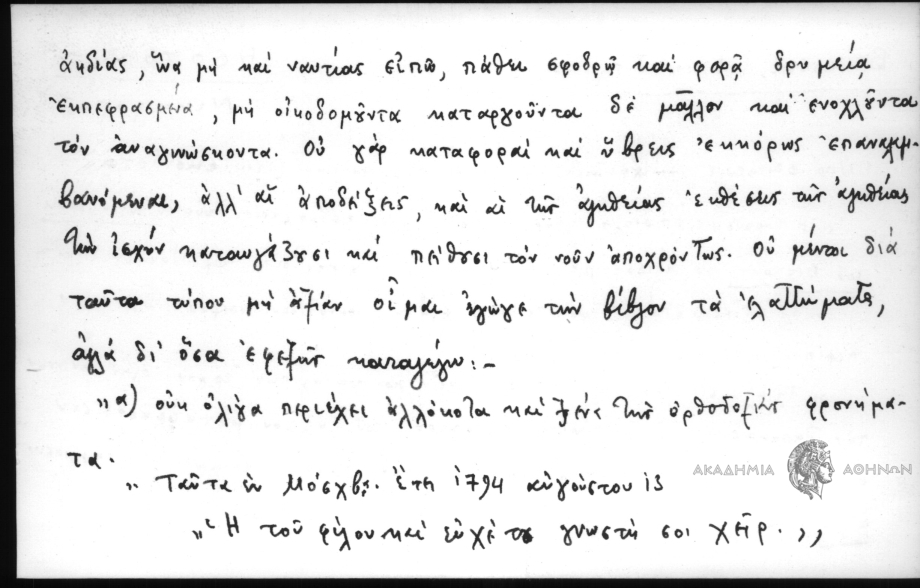 ἀηδίας, ἵνα μὴ καὶ ναυτίας εἰπῶ, πάθει σφοδρῷ καὶ φορᾷ δρυμείᾳ
ἐκπεφρασμένα, μὴ οἰκοδομοῦντα καταργοῦντα δὲ μᾶλλον καὶ ἐνοχλοῦντα
τὸν ἀναγινώσκοντα. Οὐ γὰρ καταφοραὶ καὶ ὕβρεις ἐκκόρως ἐπαναλαμ-
βανόμεναι, ἀλλ' αἱ ἀποδείξεις, καὶ αἱ τῆς ἀληθείας ἐκθέσεις τῆς ἀληθείας
τὴν ἰσχὺν καταυγάζουσι καὶ πείθουσι τὸν νοῦν ἀποχρόντως. Οὐ μέντοι διὰ
ταῦτα τύπου μὴ ἀξίαν οἶμαι ἔγωγε τὴν βίβλον τὰ ἐλαττώματα,
ἀλλὰ δι' ὅσα ἐφεξῆς καταλέγω: –
„α) οὐκ ὀλίγα περιέχει ἀλλόκοτα καὶ ξένα τῆς ὀρθοδοξίας φρονήμα-
τα.
„ Ταῦτα ἐν Μόσχβᾳ. Ἔτει 1794 αὐγούστου 13
„ Ἡ τοῦ φίλου καὶ εὐχέτου γνωστή σοι χεῖρ. „
ΑΚΑΔΗΜΙΑ ΑΘΗΝΩΝ